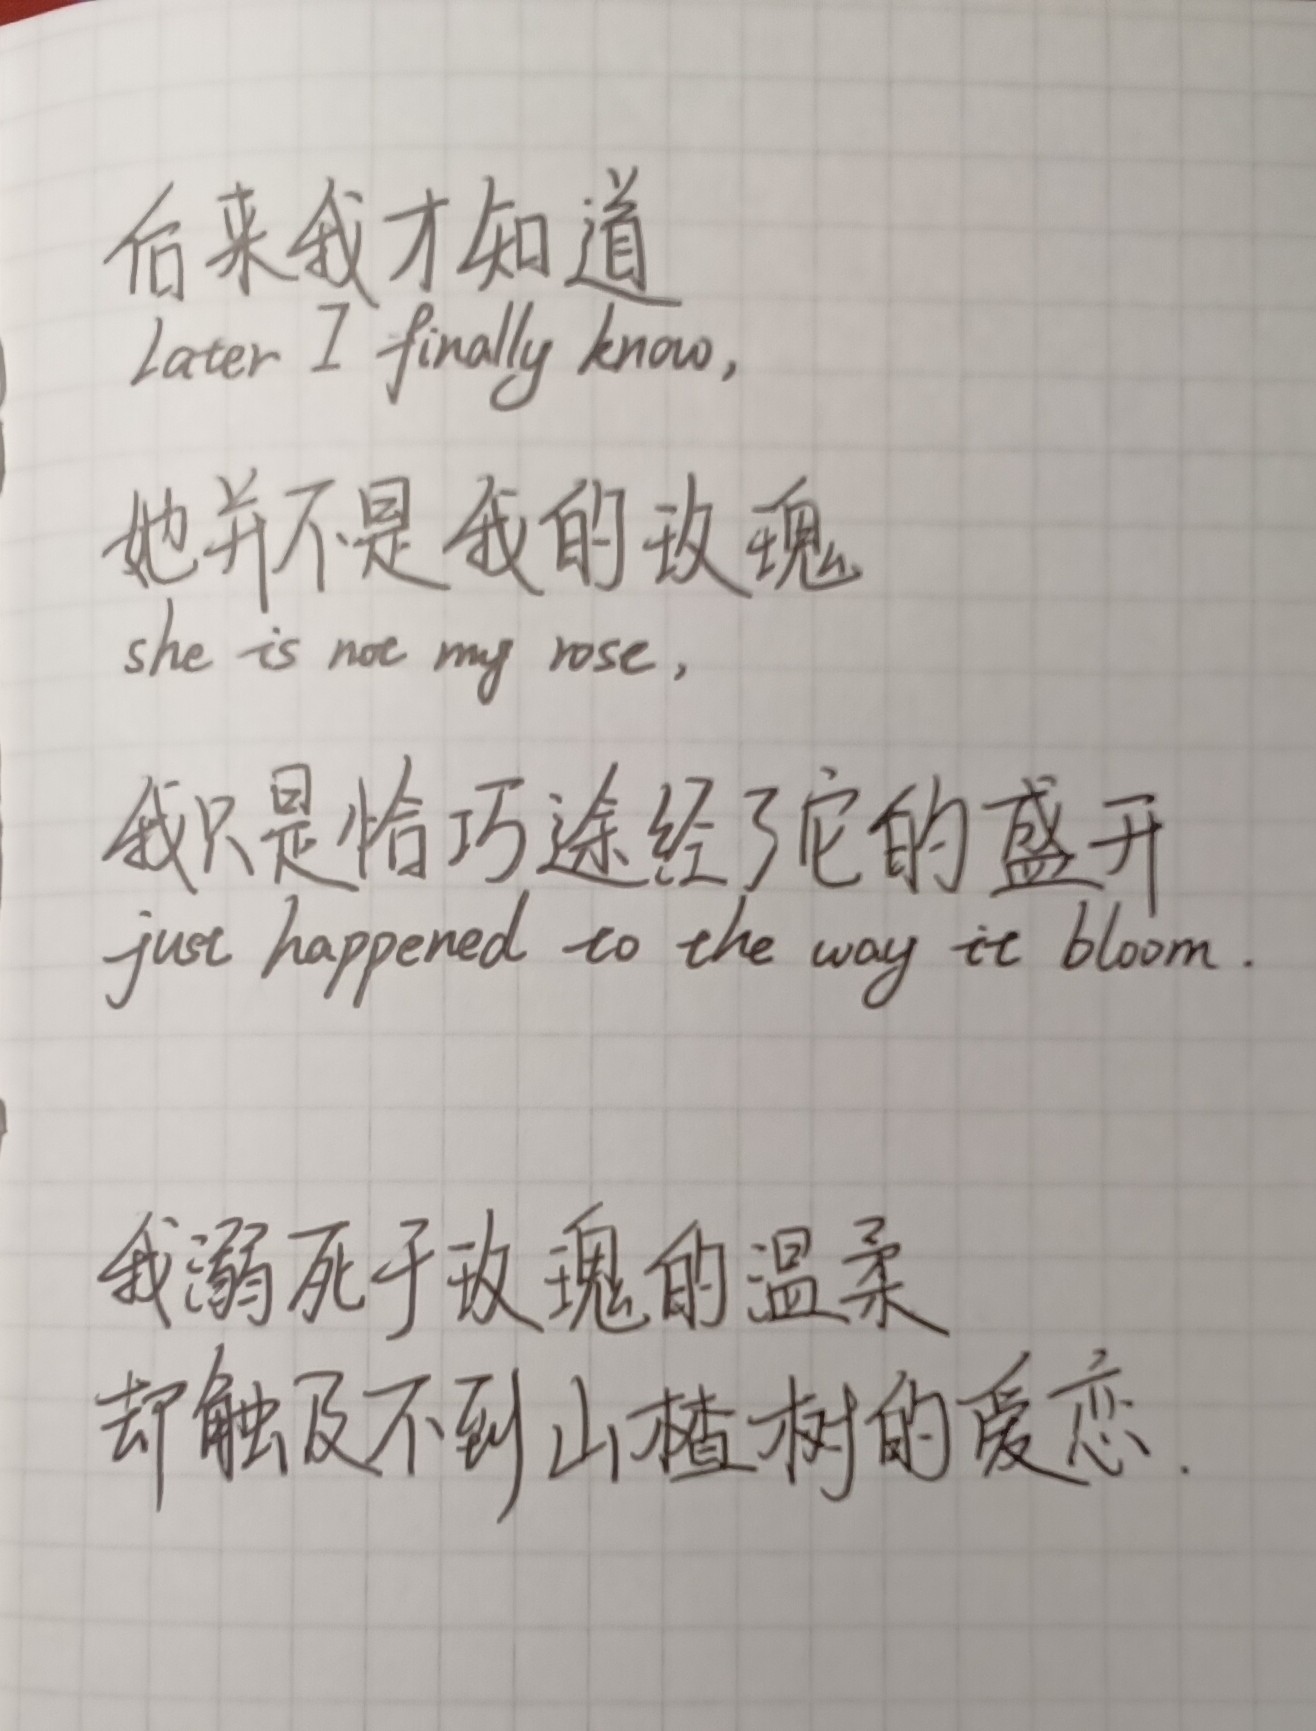 后来我才知道
Later I finally know,
她并不是我的玫瑰
she is not my rose,
我只是恰巧途经了它的盛开
just happened to the way it bloom.
我溺死于玫瑰的温柔
却触及不到山楂树的爱恋.